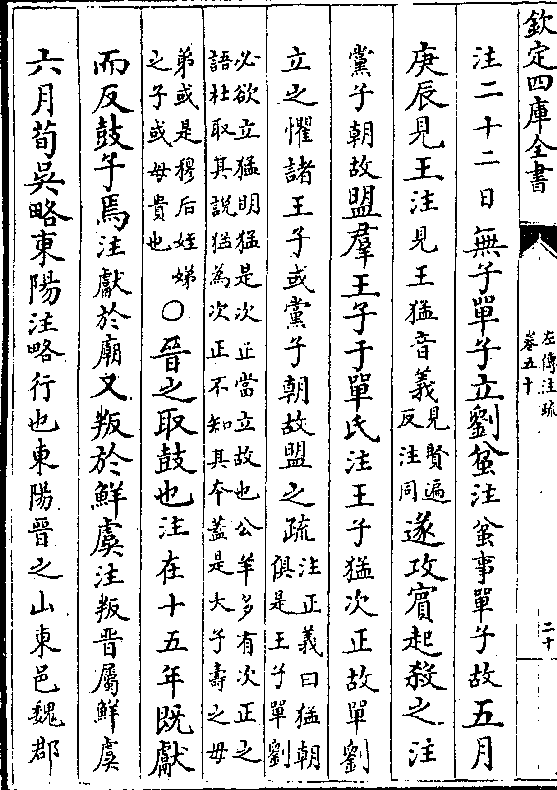 欽定四庫全書
左傳注疏
卷五十
二十
注二十二日無子單子立劉蚠注蚠事單子故五月
庚辰見王注見王猛音義見賢遍
反注同遂攻賓起殺之注
黨子朝故盟羣王子于單氏注王子猛次正故單劉
立之懼諸王子或黨子朝故盟之疏注正義曰猛朝
俱是王子單劉
必欲立猛明猛是次正當立故也公羊多有次正之
語杜取其說猛為次正不知其本蓋是大子壽之母
弟或是穆后姪娣
之子或母貴也〇晉之取鼓也注在十五年既獻
而反鼓子焉注獻於廟又叛於鮮虞注叛晉屬鮮虞
六月荀吳略東陽注略行也東陽晉之山東邑魏郡